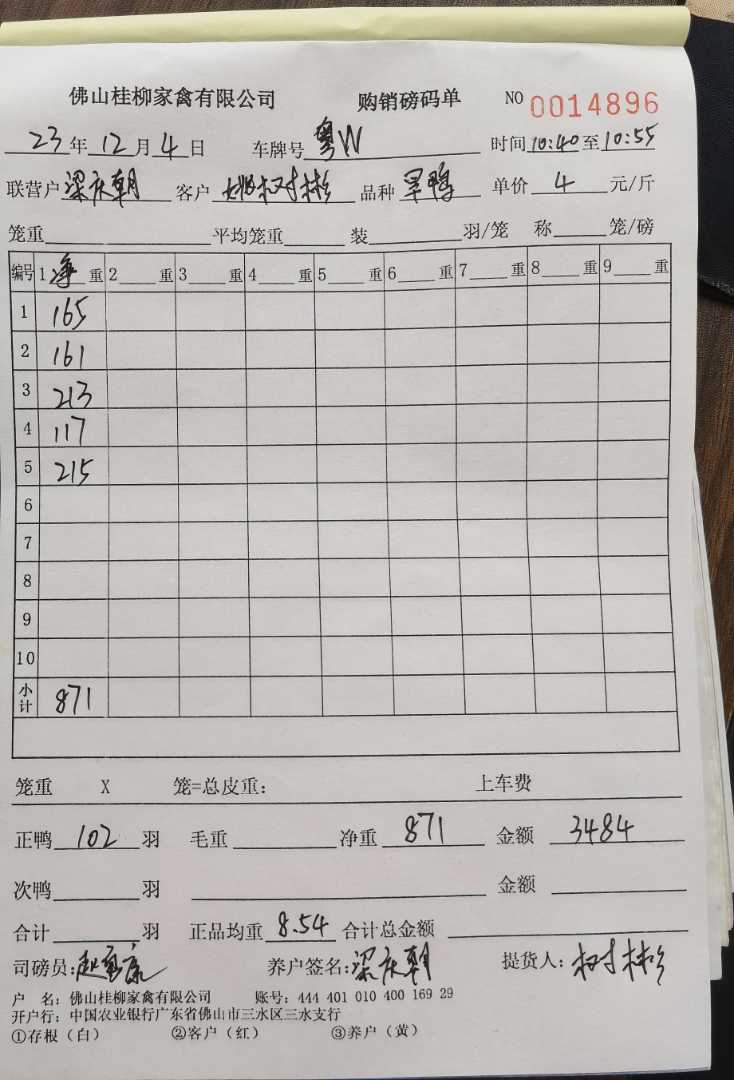 佛山桂柳家禽有限公司 购销磅码单 NO 0014896
23年12月4日 车牌号 粤W 时间10:40至10:55
联营户 梁庆朝 客户 树彬 品种 旱鸭 单价 4 元/斤
笼重 平均笼重 装 羽/笼 称 笼/磅
编号 1 净 重 2 重 3 重 4 重 5 重 6 重 7 重 8 重 9 重
1 165
2 161
3 213
4 117
5 215
6
7
8
9
10
小计 871
笼重 X 笼=总皮重: 上车费
正鸭 102 羽 毛重 净重 871 金额 3484
次鸭 羽 金额
合计 羽 正品均重 8.54 合计总金额
司磅员: 养户签名:梁庆朝 提货人: 树彬
户 名: 佛山桂柳家禽有限公司 账号: 444 401 010 400 169 29
开户行: 中国农业银行广东省佛山市三水区三水支行
①存根（白） ②客户（红） ③养户（黄）